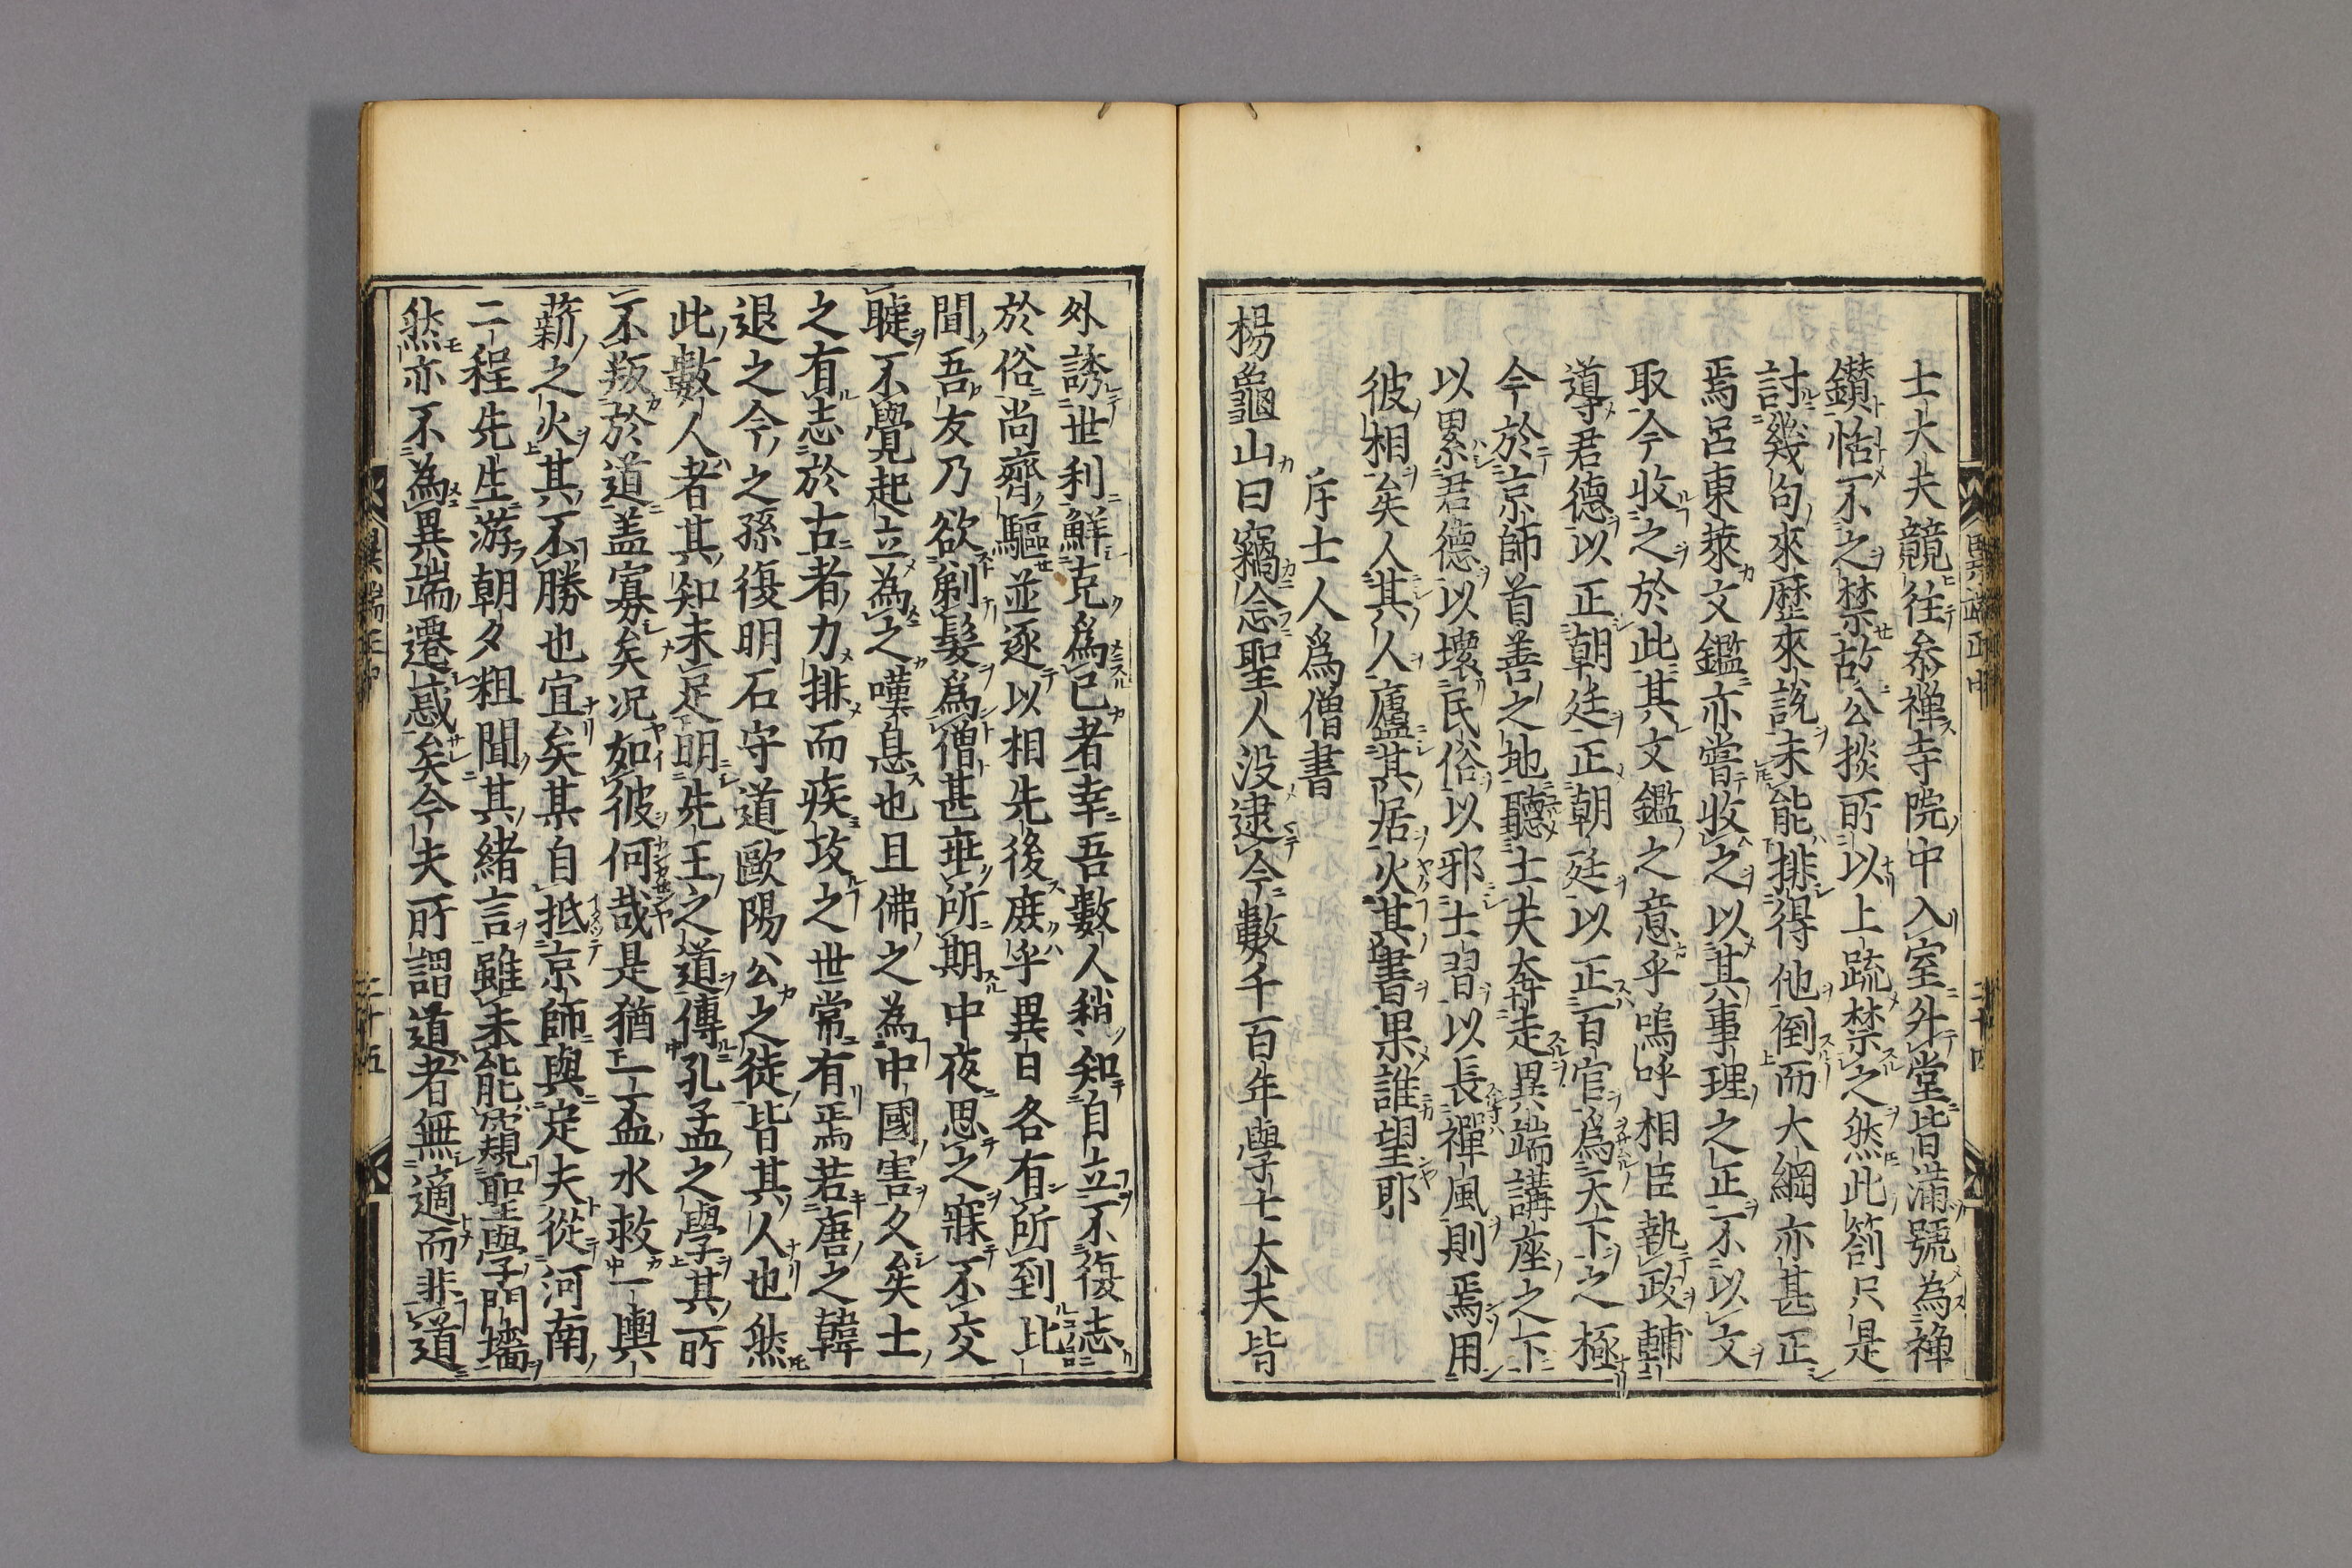 士大夫競往參禪寺院中入室升堂皆滿號為禅
鑚恬不之禁故公掞所以上疏禁之然此劄只是
討幾句來歴來說未能排得他倒而大綱亦甚正
焉呂東萊文鑑亦嘗收之以其事理之正不以文
取今收之於此其文鑑之意乎嗚呼相臣執政輔
導君德以正朝廷正朝廷以正百官為天下之極
今於京師首善之地聽士夫奔走異端講座之下
以累君德以壞民俗以邪士習以長禪風則焉用
彼相矣人其人廬其居火其書果誰望耶
斥士人爲僧書
楊龜山曰竊念聖人没逮今數千百年學士大夫皆
外誘世利鮮克爲己者幸吾數人稍知自立不復志
於俗尚齊驅並逐以相先後庶乎異日各有所到比
聞吾友乃欲剃髮爲僧甚乖所期中夜思之寐不交
睫不覺起立為之嘆息也且佛之為中國害久矣士
之有志於古者力排而疾攻之世常有焉若唐之韓
退之今之孫復明石守道歐陽公之徒皆其人也然
此數人者其知未足明先王之道傳孔孟之學其所
不叛於道盖寡矣况如彼何哉是猶一盃水救一輿
薪之火其不勝也宜矣某自抵京師與定夫從河南
二程先生游朝夕粗聞其緒言雖未能窺聖學門墻
然亦不為異端遷惑矣今夫所謂道者無適而非道
異端正中
二十五